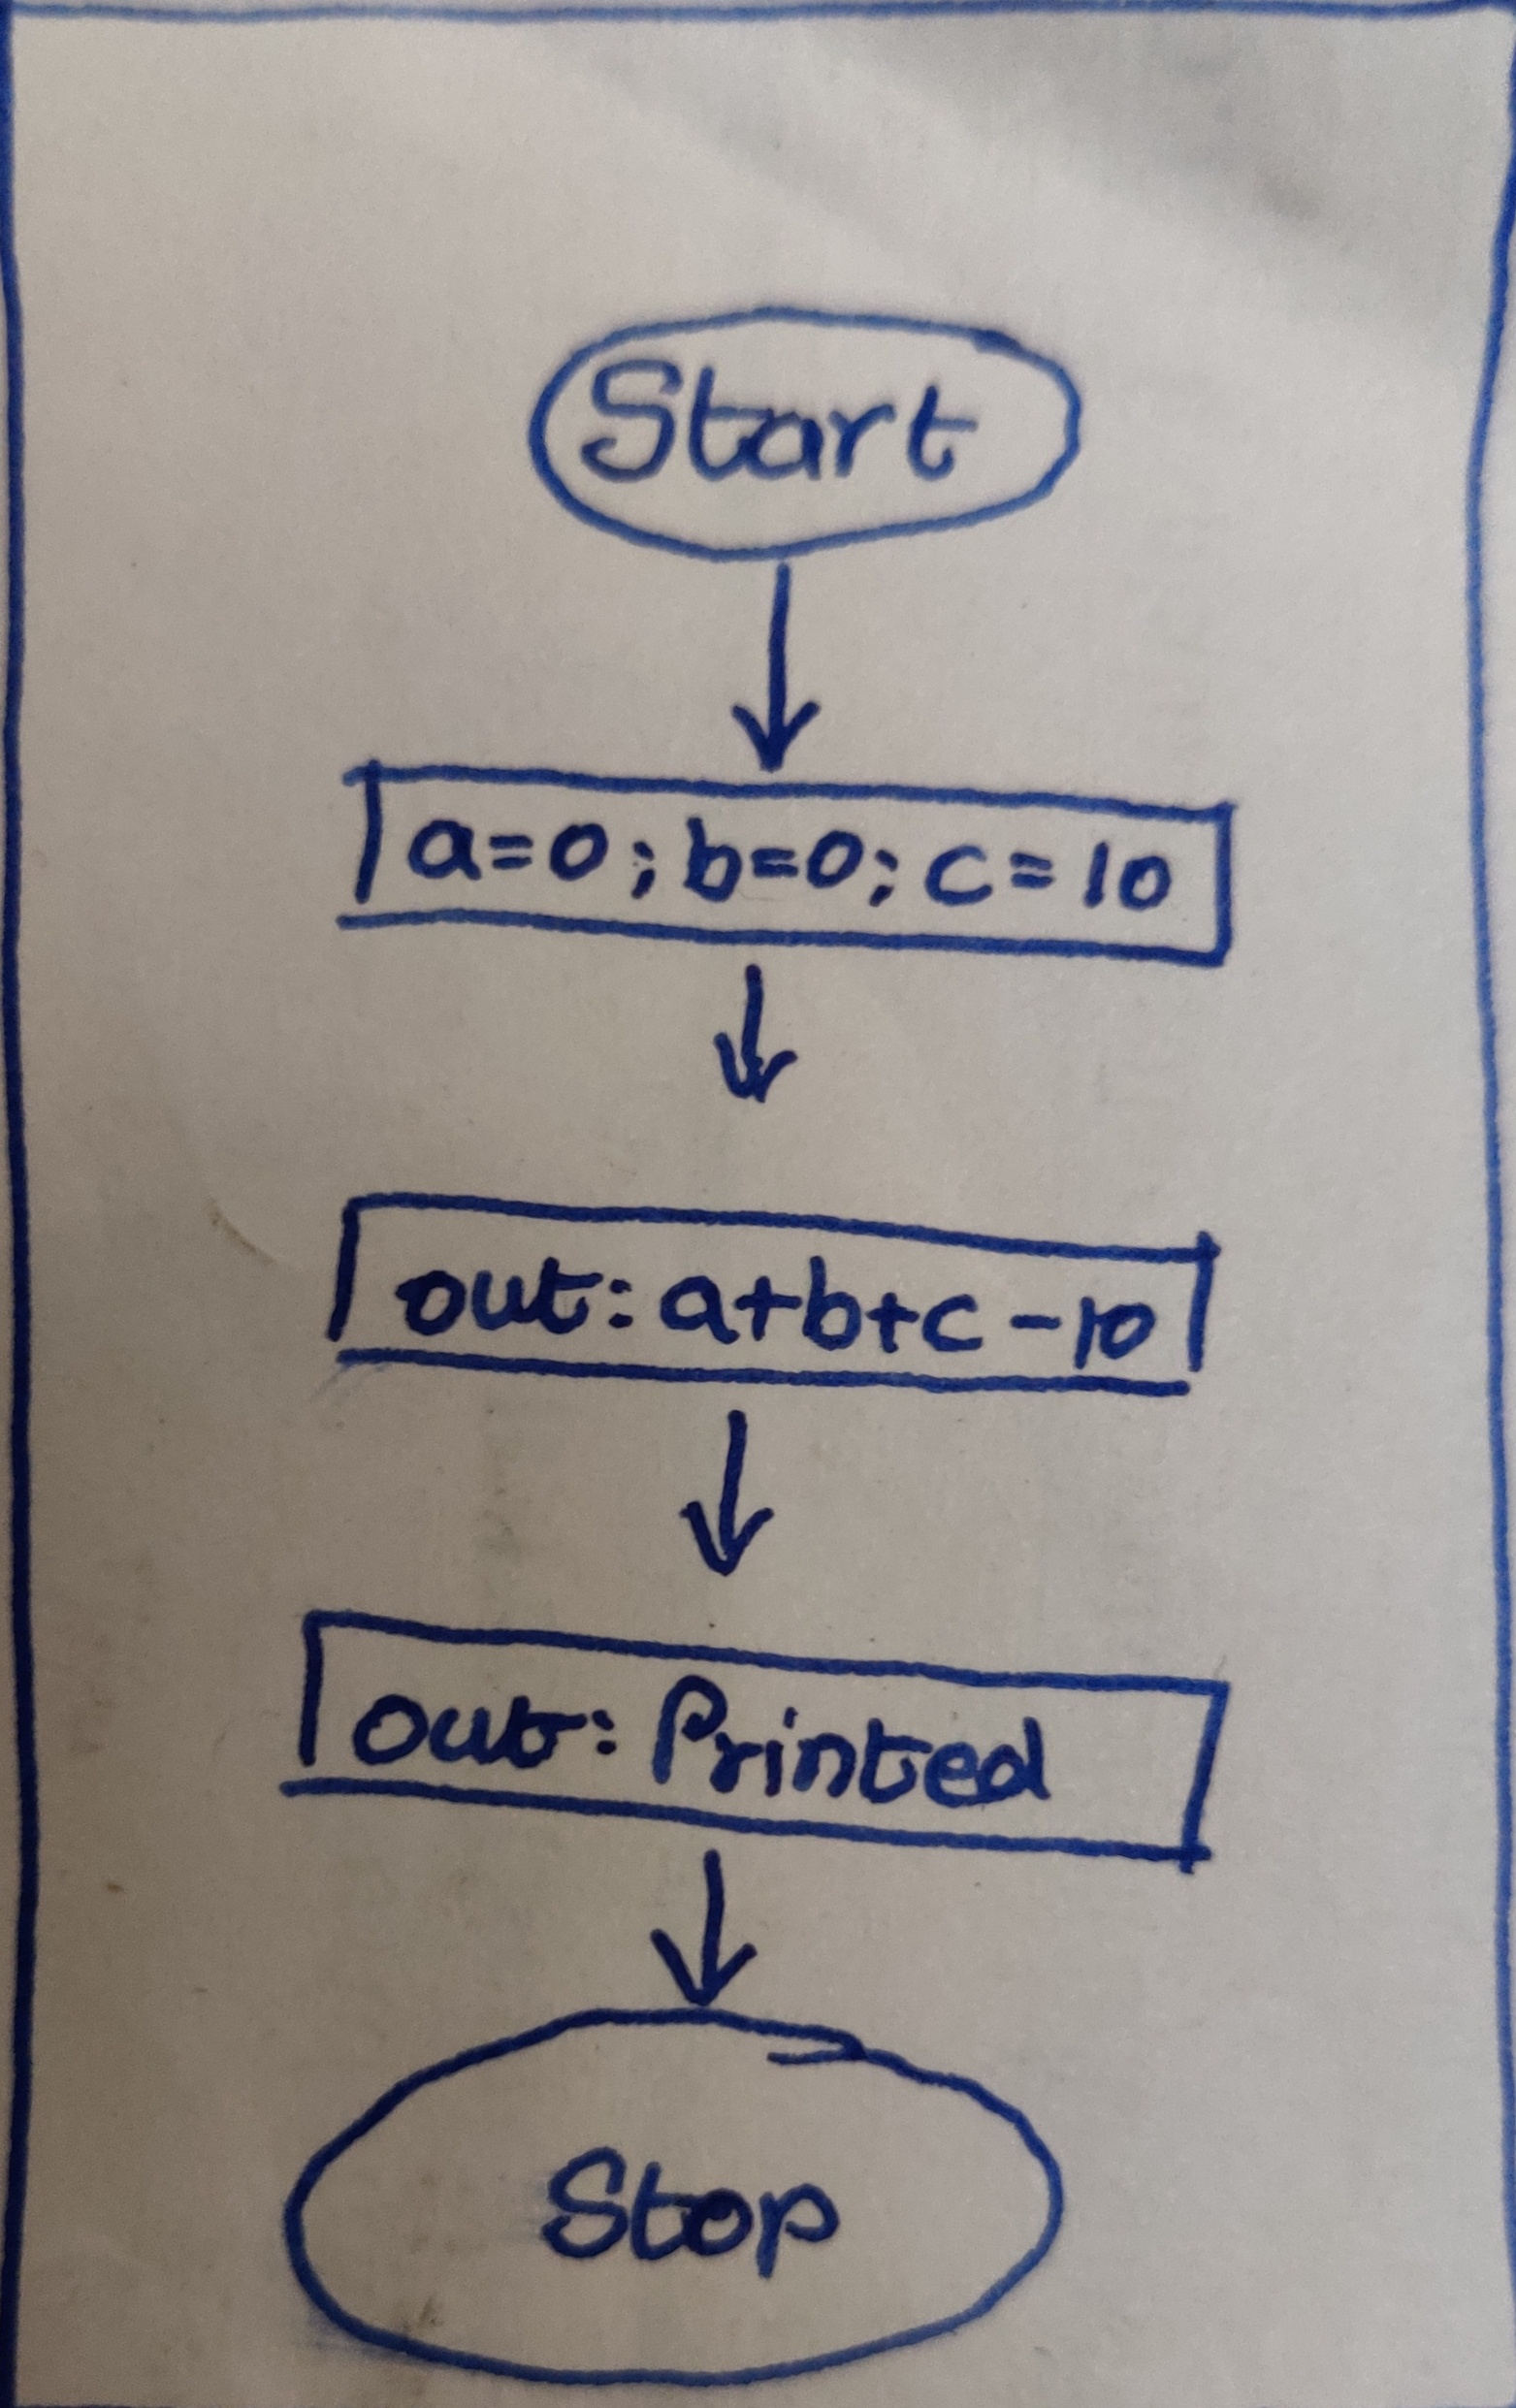 Start
a=0; b=0; c=10
out: a+b+c-10
out: Printed
Stop